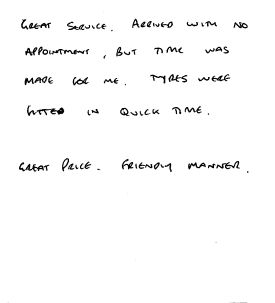 GREAT SERVICE. ARRIVED WITH NO
APPOINTMENT, BUT TIME WAS
MADE FOR ME. TYRES WERE
FITTED IN QUICK TIME.
GREAT PRICE. FRIENDLY MANNER.